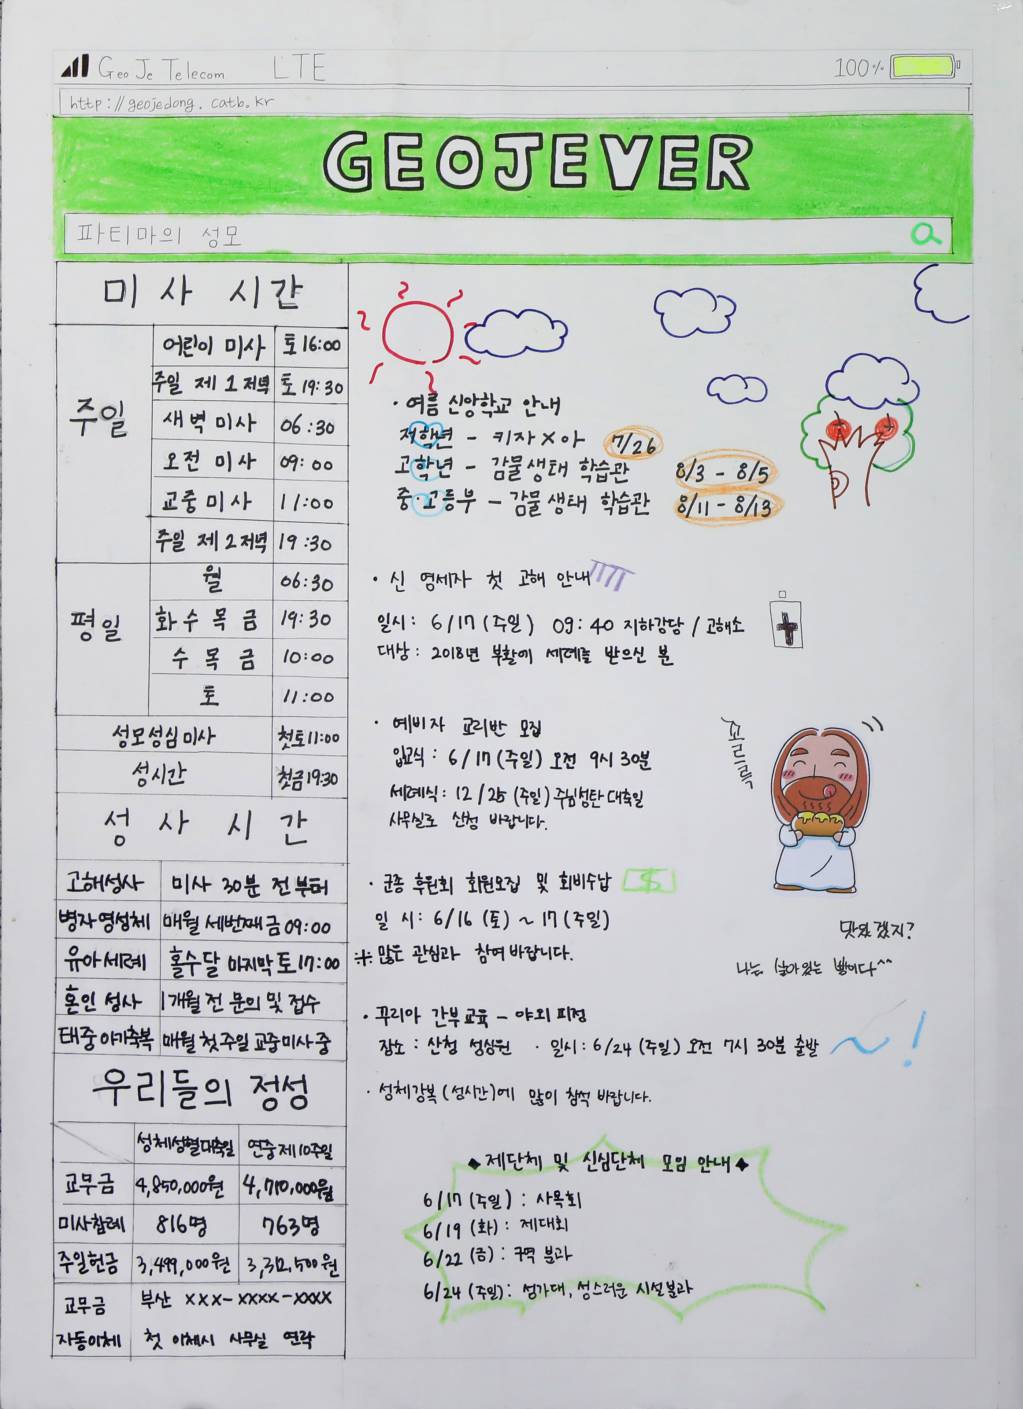 Geo Je Telecom LTE 100%
http://geojedong.catb.kr
GEOJEVER
파티마의 성모
미사 시간
주일
어린이 미사 토 16:00
주일 제 1 저녁 토 19:30
새벽 미사 06:30
오전 미사 09:00
교중 미사 11:00
주일 제 2 저녁 19:30
평일
월 06:30
화 수 목 금 19:30
수 목 금 10:00
토 11:00
성모성심 미사 첫토 11:00
성시간 첫금 19:30
성사 시간
고해성사 미사 30분 전 부터
병자 영성체 매월 세번째 금 09:00
유아세례 홀수달 마지막 토 17:00
혼인 성사 1개월 전 문의 및 접수
태중 아기축복 매월 첫 주일 교중미사 중
우리들의 정성
성체성혈대축일 연중 제10주일
교무금 4,850,000원 4,710,000원
미사참례 816명 763명
주일헌금 3,499,000원
교무금 부산 xxx-xxxx-xxxx
자동이체 첫 이체시 사무실 연락
· 여름 신앙학교 안내
저학년 - 키자X아 7/26
고학년 - 감물생태 학습관 8/3 - 8/5
중·고등부 - 감물생태 학습관 8/11 - 8/13
· 신 영세자 첫 고해 안내
일시: 6/17 (주일) 09:40 지하강당 / 고해소
대상: 2018년 부활에 세례를 받으신 분
· 예비자 교리반 모집
입교식: 6/17 (주일) 오전 9시 30분
세례식: 12/25 (주일) 주님성탄 대축일
사무실로 신청 바랍니다.
꼬르륵
· 군종 후원회 회원모집 및 회비수납 $
일 시: 6/16 (토) ~ 17 (주일)
※ 많은 관심과 참여 바랍니다.
맛있겠지?
나는 살아있는 빵이다^^
· 꾸리아 간부교육 - 야외 피정
장소: 산청 성심원 · 일시: 6/24 (주일) 오전 7시 30분 출발 ~!
· 성체강복 (성시간)에 많이 참석 바랍니다.
◆ 제단체 및 신심단체 모임 안내 ◆
6/17 (주일): 사목회
6/19 (화): 제대회
6/22 (금): 구역 분과
6/24 (주일): 성가대, 성스러운 시설분과